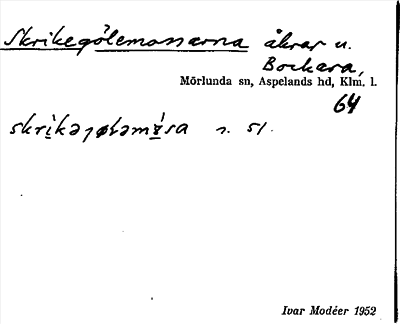 Skrikegölemossarna åkrar u.
Bockara,
Mörlunda sn, Aspelands hd, Klm. l.
64
s. 51.
Ivar Modéer 1952